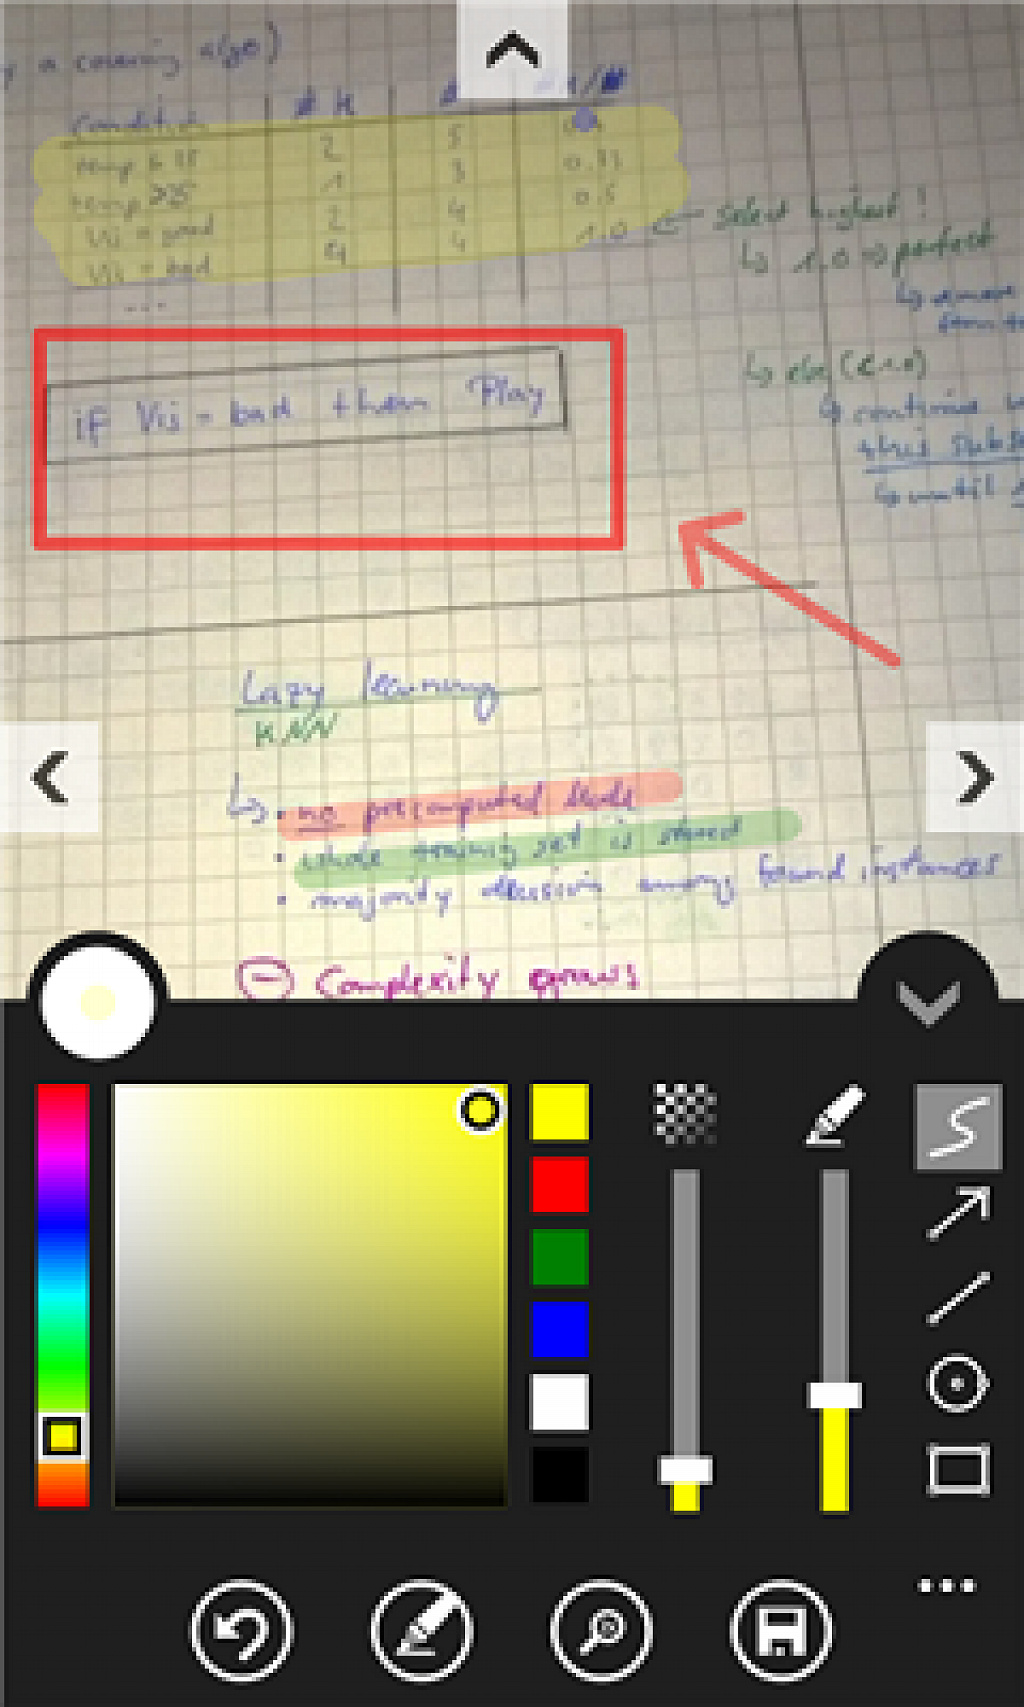 a covering algo)
Condition # K # /#
temp ≤ 15 2 5
temp >25 1 3 0.33
Vis = good 2 4 0.5
Vis = bad 4 4 1.0 ← select highest!
...
↳ 1.0 ⇒ perfect
↳ remove
↳ else (<1.0)
if Vis = bad then Play
↳ continue
this subs
↳ until
Lazy learning
KNN
↳ • no precomputed Mode
• whole training set is stored
• majority decision among found instances
⊖ Complexity grows